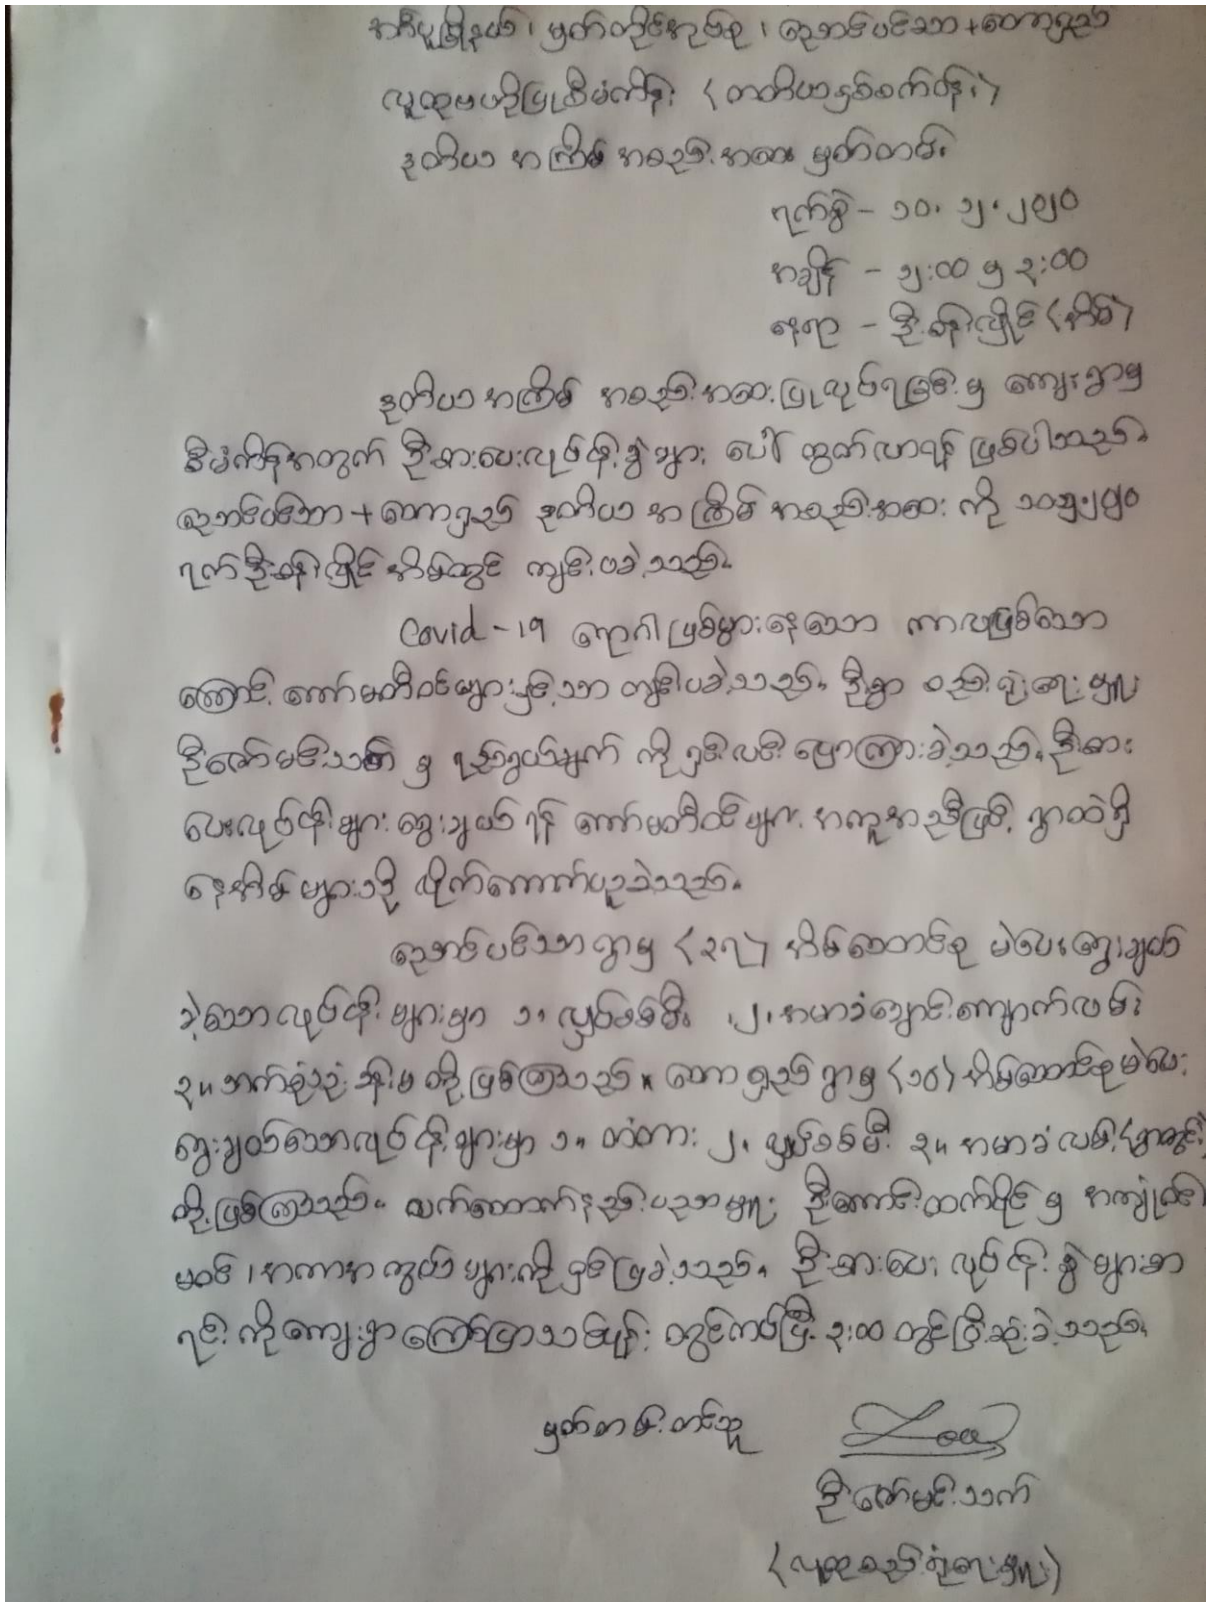 အင်္ဂပူမြို့နယ်၊ မှတ်တိုင်အုပ်စု၊ ညောင်ပင်သာ+တောရှည်
လူထုဗဟိုပြုစီမံကိန်း (တတိယနှစ်စက်ဝန်း)
ဒုတိယ အကြိမ် အစည်းအဝေး မှတ်တမ်း
ရက်စွဲ - ၁၀.၁၂.၂၀၂၀
အချိန် - ၁၂:၀၀ မှ ၃:၀၀
နေရာ - ဦးခန့်လှိုင် (အိမ်)
ဒုတိယ အကြိမ် အစည်းအဝေးပြုလုပ်ရခြင်းမှ ကျေးရွာမှ
စီမံကိန်းအတွက် ဦးစားပေးလုပ်ငန်းခွဲများ ပေါ်ထွက်လာရန် ဖြစ်ပါသည်။
ညောင်ပင်သာ+တောရှည် ဒုတိယ အကြိမ် အစည်းအဝေး ကို ၁၀၊၁၂၊၂၀၂၀
ရက် ဦးခန့်လှိုင် အိမ်တွင် ကျင်းပခဲ့သည်။
Covid-19 ရောဂါဖြစ်ပွားနေသော ကာလဖြစ်သော
ကြောင့် ကော်မတီဝင်များနှင့်သာ ကျင်းပခဲ့သည်။ ဦးစွာ စည်းရုံးရေးမှူး
ဦးဇော်မင်းသက် မှ ရည်ရွယ်ချက် ကို ရှင်းလင်းပြောကြားခဲ့သည်။ ဦးစား
ပေးလုပ်ငန်းများ ရွေးချယ်ရန် ကော်မတီဝင်များ အကူအညီဖြင့် ရွာထဲရှိ
နေအိမ်များသို့ လိုက်ကောက်ယူခဲ့သည်။
ညောင်ပင်သာရွာမှ (၃၇) အိမ်ထောင်စု မဲပေးရွေးချယ်
ခဲ့သောလုပ်ငန်းများမှာ ၁။ လျှပ်စစ်မီး ၂။ အမာခံချောင်းကျောက်လမ်း
၃။ ဘက်စုံသုံးခန်းမ တို့ဖြစ်ကြသည်။ တောရှည်ရွာမှ (၁၀) အိမ်ထောင်စုမဲပေး
ရွေးချယ်သောလုပ်ငန်းများမှာ ၁။ တံတား ၂။ လျှပ်စစ်မီး ၃။ အမာခံလမ်း(ရွာတွင်း)
တို့ဖြစ်ကြသည်။ လက်ထောက်နည်းပညာမှူး ဦးအောင်ထက်ပိုင် မှ အကျုံးဝင်၊
မဝင်၊ အကာအကွယ်များကို ရှင်းပြခဲ့သည်။ ဦးစားပေး လုပ်ငန်းခွဲများစာ
ရင်းကိုကျေးရွာကြော်ငြာသင်ပုန်းတွင်ကပ်ပြီး ၃:၀၀ တွင်ပြီးဆုံးခဲ့သည်။
မှတ်တမ်းတင်သူ
ဦးဇော်မင်းသက်
(လူထုစည်းရုံးရေးမှူး)